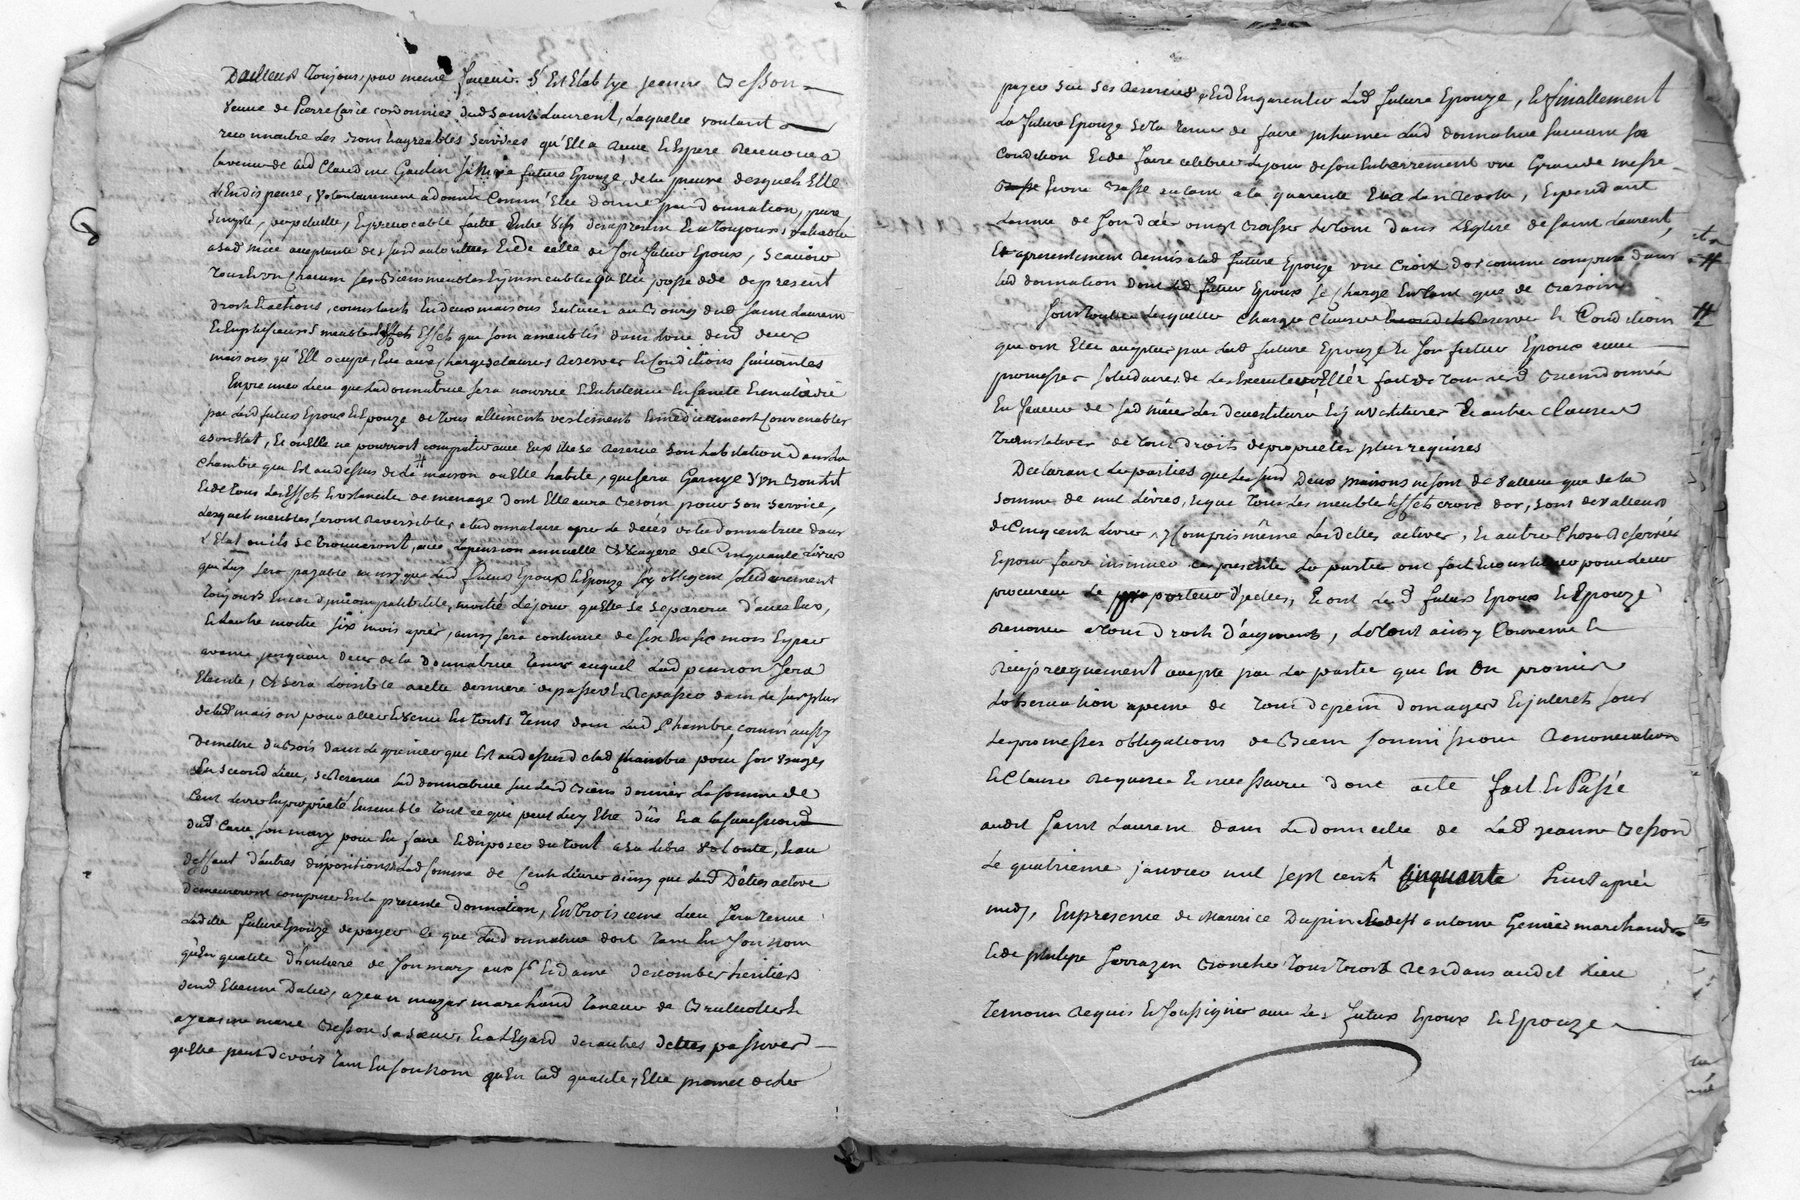 Dailleurs toujours, par meme faveur s'est Etablye jeanne Besson
veuve de Pierre Carie cordonnier dud saint Laurent, laquelle voulant
reconnaitre les bons hagreables services qu'Ella a Reçue & Espere Recevoir a
lavenir de lad Claudine Gaulin sa niéce future Epouze, de la preuve desquels Elle
& En dispense, volontairement a donné Comm' Elle donne par donnation, pure,
simple, perpetuelle, Eyrrevocable faitte Entre vifs des apresent & a toujours, valiable
a sad niéce acceptante des susd authorittées & de celle de son futur Epoux, scavoir
tous & un chacun ses Biens meubles Eyimmeubles qu'Elle possede de present
droits & actions, consistants En deux maisons scituées au Bourg dud saint Laurent
& En plusieurs meubles & Effets qui sont ameublés dans l'une desd deux
maisons qu'Elle occupe, & ce aux charges clauses Reserves & conditions suivantes
En premier lieu que lad donnatrice sera nourrie & Entretenue En santé & maladie
par lesd futurs Epoux & Epouze de tous alliments vestements & medicaments convenables
a son Etat, & ou Elle ne pourroit compatir avec Eux Elle se Reserve son habitation dans la
chambre qui Est au dessus de la maison ou Elle habite, qui sera Garnye d'un Bon lit
& de tous les Effets & ustancilles de menage dont Elle aura Besoin pour son service,
lesquels meubles seront Reversibles a lad donnataire apres le decés de la donnatrice dans
l'Etat ou ils se trouveront, avec la pension annuelle & viagere de Cinquante livres
qui luy sera payable ainsy que lesd futurs Epoux & Epouze s'y obligent solidairement
toujours En cas d'jncompatibilité, moitié le jour qu'Elle se separera d'avec Eux,
& l'autre moitié six mois après, ainsy sera continué de six En six mois Eypar
avance jusqu'au decés de la donnatrice tems auquel lad pension sera
Eteinte, & sera loisible a cette derniere de passer & Repasser dans le surplus
de lad maison pour aller & venir En touts tems dans lad Chambre, comm'aussy
de mettre du Bois dans le grenier qui Est au dessus de lad chambre pour son usage
En second lieu, se Reserve lad donnatrice sur lesd Biens donnés la somme de
Cent livres En propriété Ensemble tout ce qui peut luy Etre dûs En la succession
dud Carie son mary pour En faire & disposer du tout a sa libre volonté, & au
deffaut d'autres dispositions lad somme de Cent livres ainsy que lesd Dettes active
demeureront comprises En la presente donnation, En troisieme lieu sera tenue
laditte future Epouze de payer ce que lad donnatrice doit tant En son nom
qu'En qualité d'heritiere de son mary aux sr & dame Decomber heritiers
dusd Etienne Dalier, a jean mazar marchand taneur de Brulliolles &
a jeanne marie Besson sa sœur, & a l'Egard des autres dettes passives
qu'Elle peut devoir tant En son nom qu'En lad qualité, Elle promet de les
payer sur ses Reserves & d'En garentir lad future Epouze, & finallement
la future Epouze sera tenue de faire jnhumer lad donnatrice suivant sa
condition & de faire celebrer le jour de son Enterrement une Grande messe
& une Basse autant a la quarante & au bout de l'an, & pendant
l'année de son decés vingt Basses le tout dans l'Eglise de saint Laurent,
& apresentement Remis a lad future Epouze une croix d'or comme comprise dans
lad donnation dont lad futur Epoux se charge En tant que de Besoin
sous toutes lesquelles charges clauses Reserves & Conditions
qui ont Eté acceptées par lad future Epouze & son futur Epoux avec
promesses solidaires de les Executer Elle s'est faitte du tout cy d
En faveur de sad niéce les devestiture & jnvestiture & autres clauses
translatives de tous droits de proprietés plus requises
Declarant les parties que lesd Deux maisons ne sont de valleur que de la
somme de mil livres, & que tous les meubles Effets croix d'or, sont de valleurs
de Cinq cent livres y compris même lesd dettes actives, & autres choses Reservées
& pour faire insinuer ces presentes les parties ont fait & constitué pour leur
procureur le porteur d'jcelles, & ont lesd futurs Epoux & Epouze
Renoncé a tous droits d'augments, le tout ainsy convenu &
Reciproquement accepté par les parties qui En On promis
l'observation a peine de tous depens domages & jnterets sous
les promesses obligations de Biens soumissions Renonciations
& Clauses Requises & necessaires dont acte fait & Passé
audit saint Laurent dans le domicile de lad jeanne Besson
le quatrieme janvier mil sept cent cinquante huit après
midy, En presence de Maurice Dupin & de st antoine Genier marchands
& de philipe sarrazin Boucher tous trois Residans audit lieu
temoins Requis & soussignés avec les futurs Epoux & Epouze